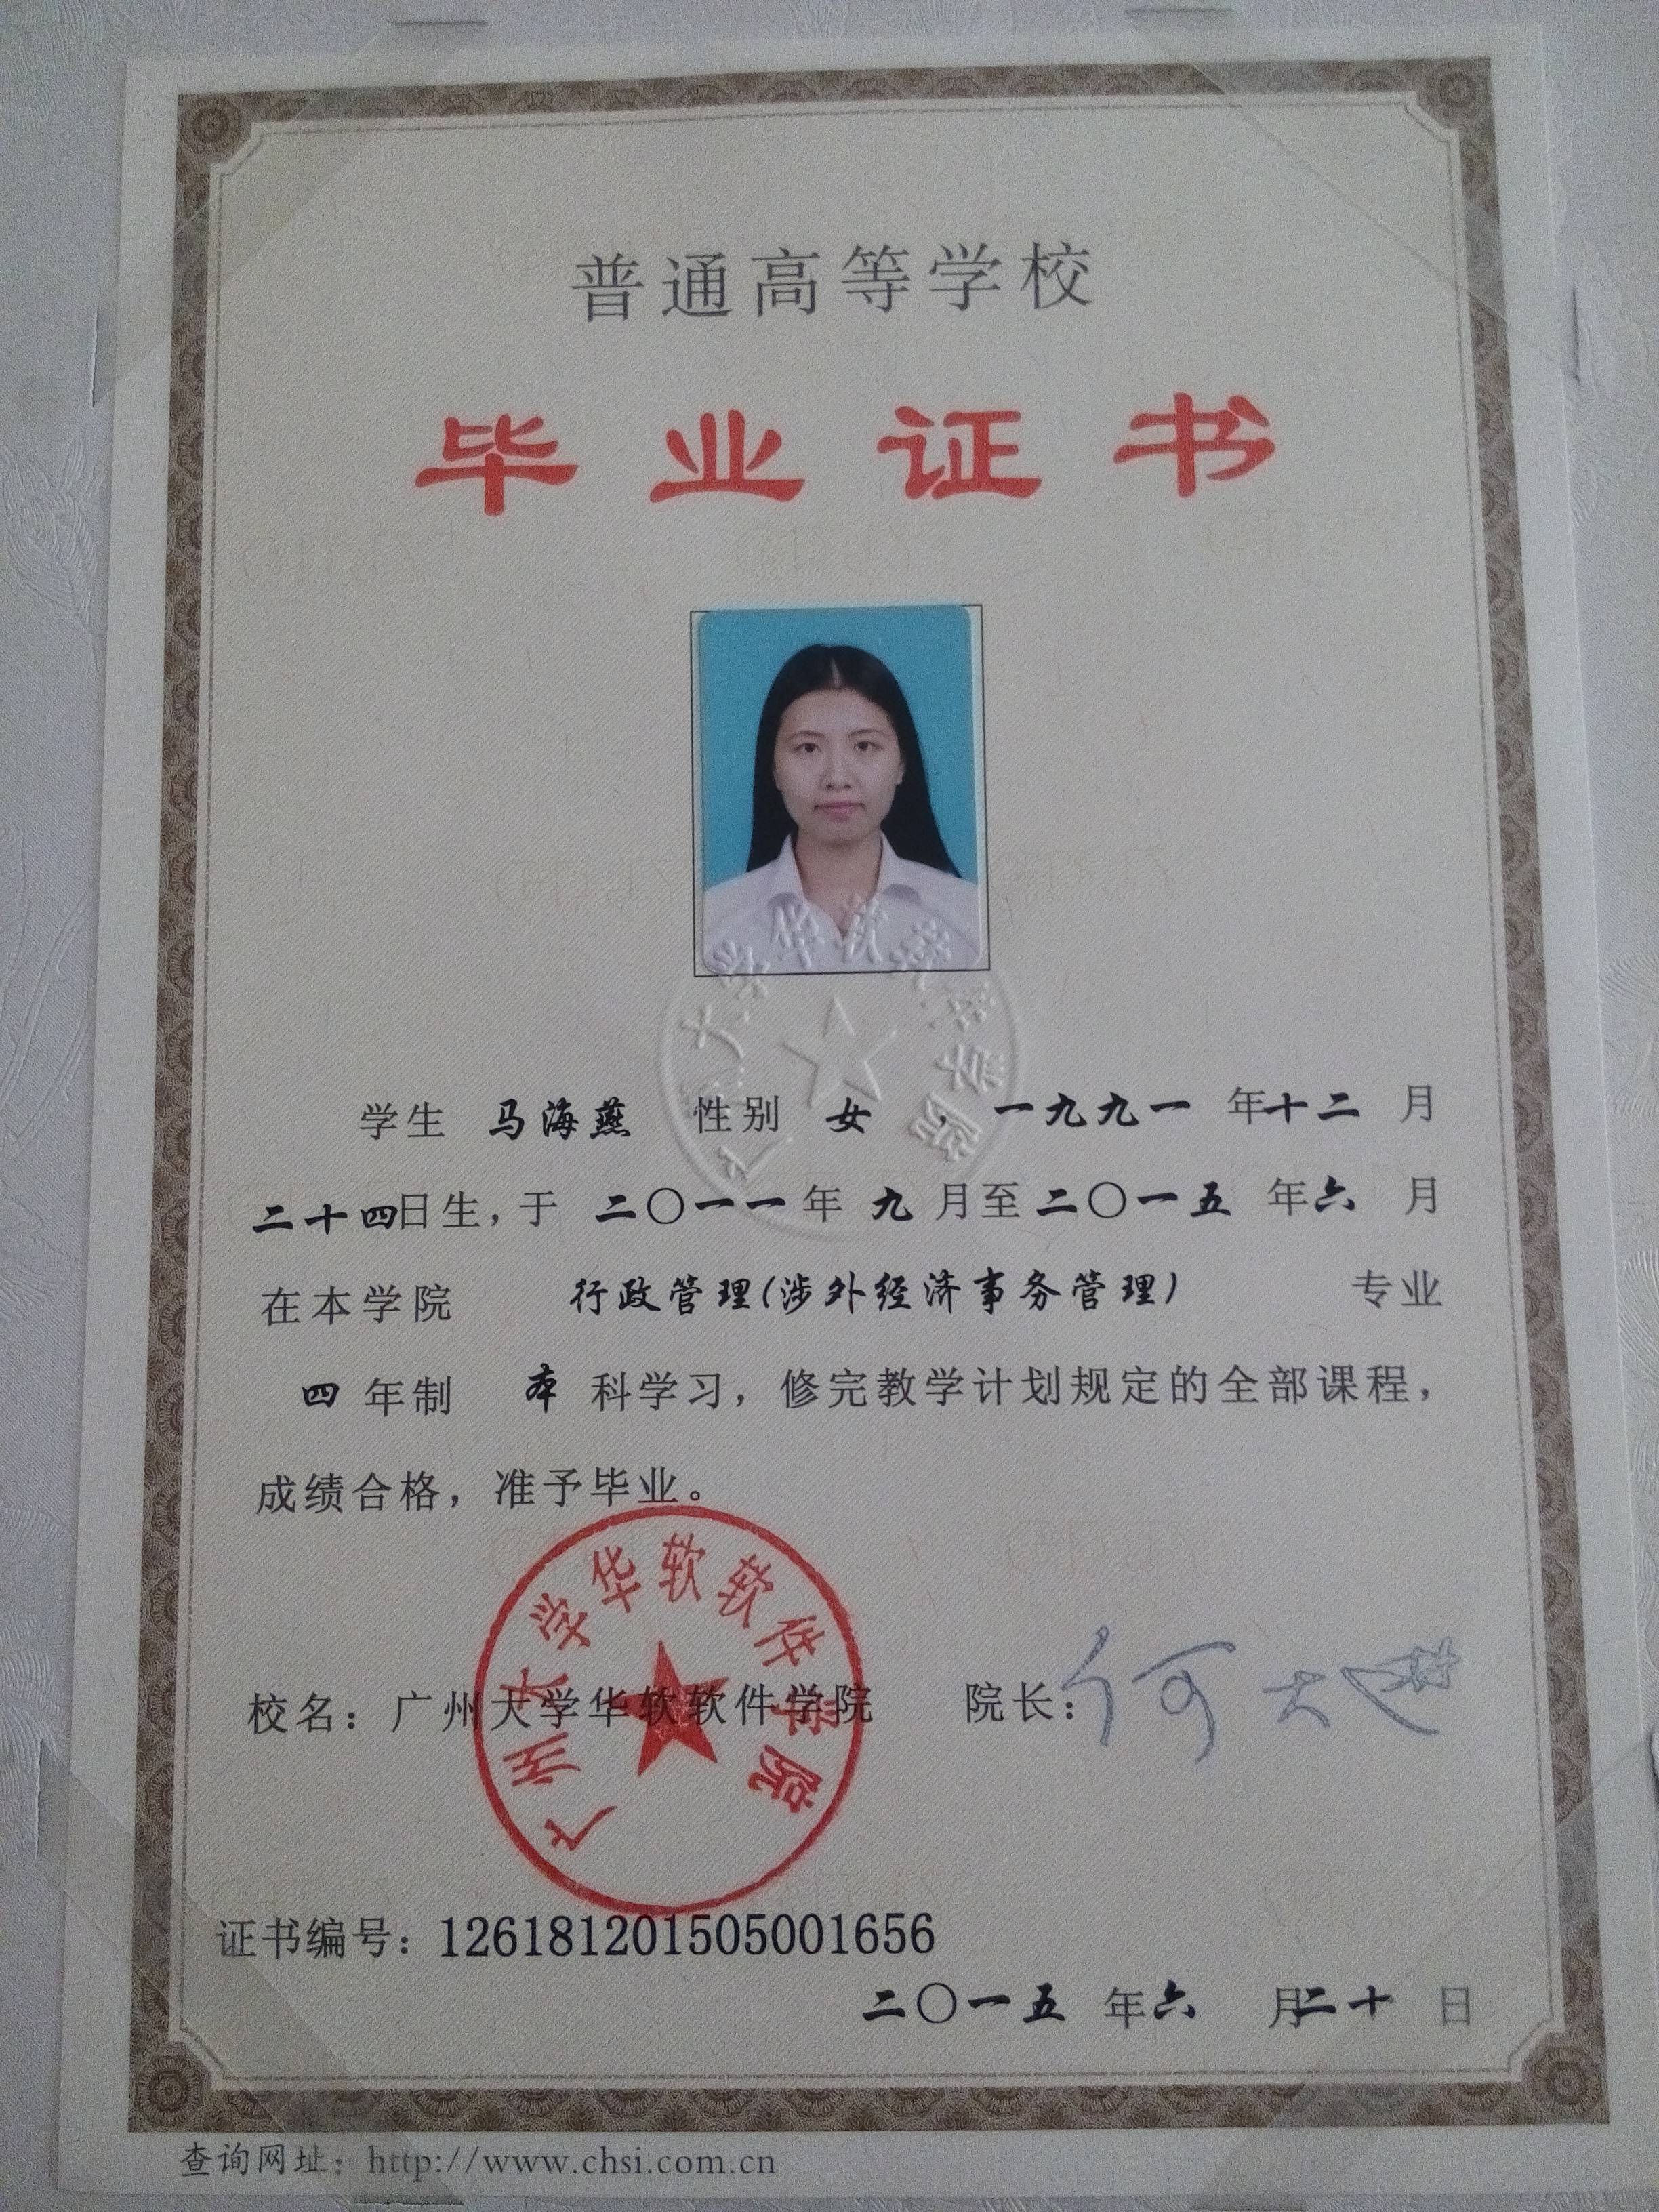 普通高等学校
毕业证书
学生 马海燕 性别 女 ，一九九一 年十二 月
二十四日生，于 二〇一一年 九 月至 二〇一五 年六 月
在本学院 行政管理(涉外经济事务管理) 专业
四 年制 本 科学习，修完教学计划规定的全部课程，
成绩合格，准予毕业。
广州大学华软软件学院
校名：广州大学华软软件学院 院长：
广州大学华软软件学院
证书编号：126181201505001656
二〇一五 年六 月二十 日
查询网址：http://www.chsi.com.cn